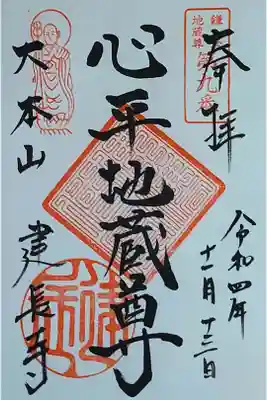 奉拝
鎌倉
地蔵尊
第九番
心平地蔵尊
大本山
建長寺
令和四年
十一月十三日